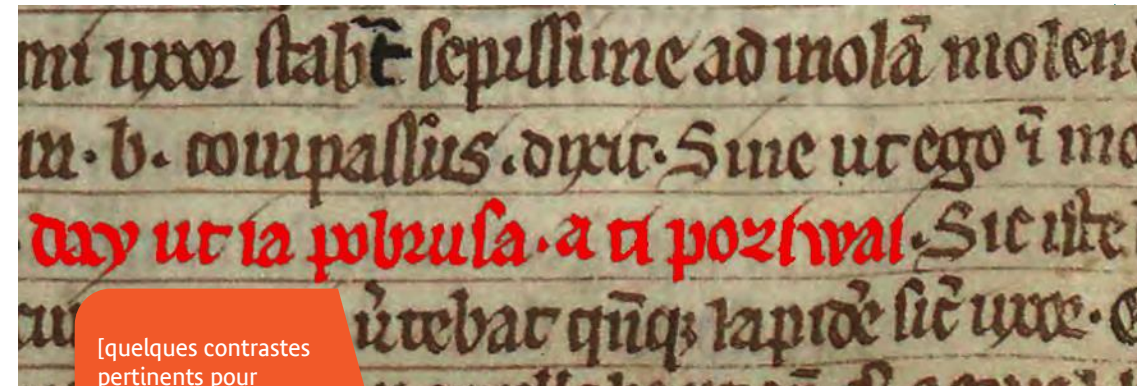 mi uxor stab̄t sepissime ad molā molen
m · b · compassus · dixit · Sine ut ego ī mo
day ut ia pobrusa · a ti poziwai · Sic iste
v̄tebat qn̄qꝫ lapidē sic̄ uxor ·
[quelques contrastes
pertinents pour